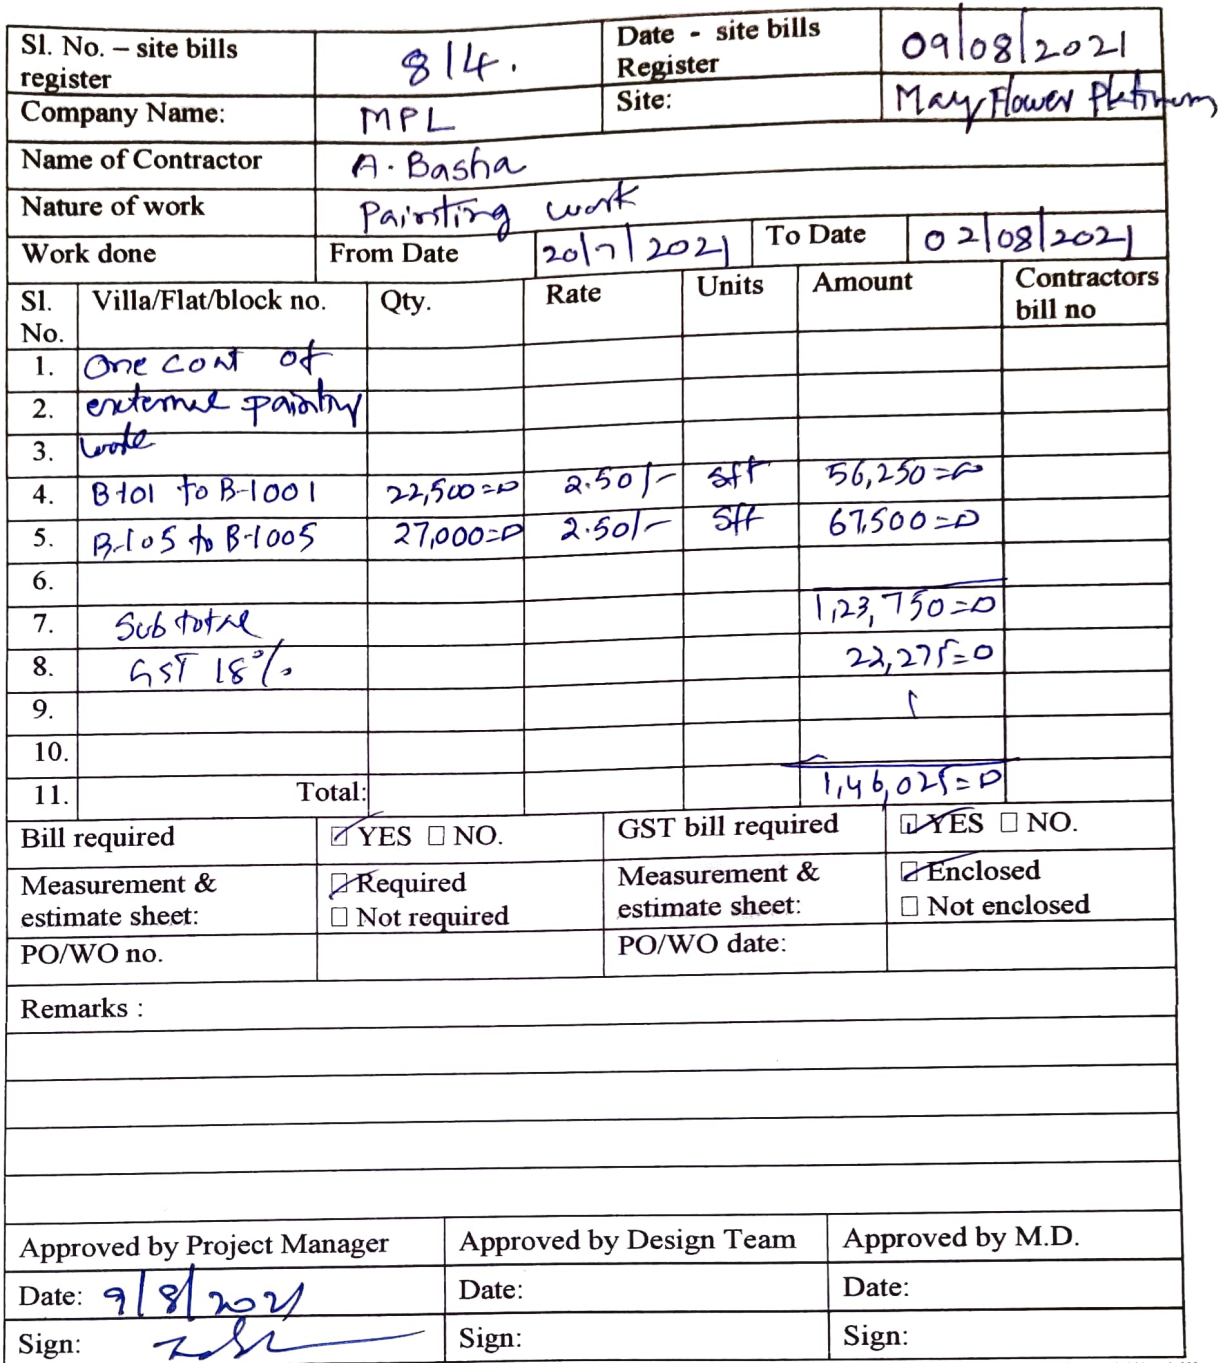 Sl. No. – site bills register 814. Date - site bills Register 09/08/2021
Company Name: MPL Site: May Flower Platinum
Name of Contractor A. Basha
Nature of work Painting work
Work done From Date 20/7/2021 To Date 02/08/2021
Sl. No. Villa/Flat/block no. Qty. Rate Units Amount Contractors bill no
1. One coat of
2. external painting
3. work
4. B-101 to B-1001 22,500=0 2.50/- sft 56,250=0
5. B-105 to B-1005 27,000=0 2.50/- sft 67,500=0
6.
7. Sub total 1,23,750=0
8. GST 18% 22,275=0
9.
10.
11. Total: 1,46,025=0
Bill required ☑ YES ☐ NO. GST bill required ☑ YES ☐ NO.
Measurement & estimate sheet: ☑ Required ☐ Not required Measurement & estimate sheet: ☑ Enclosed ☐ Not enclosed
PO/WO no. PO/WO date:
Remarks :
Approved by Project Manager Approved by Design Team Approved by M.D.
Date: 9/8/2021 Date: Date:
Sign: Sign: Sign: